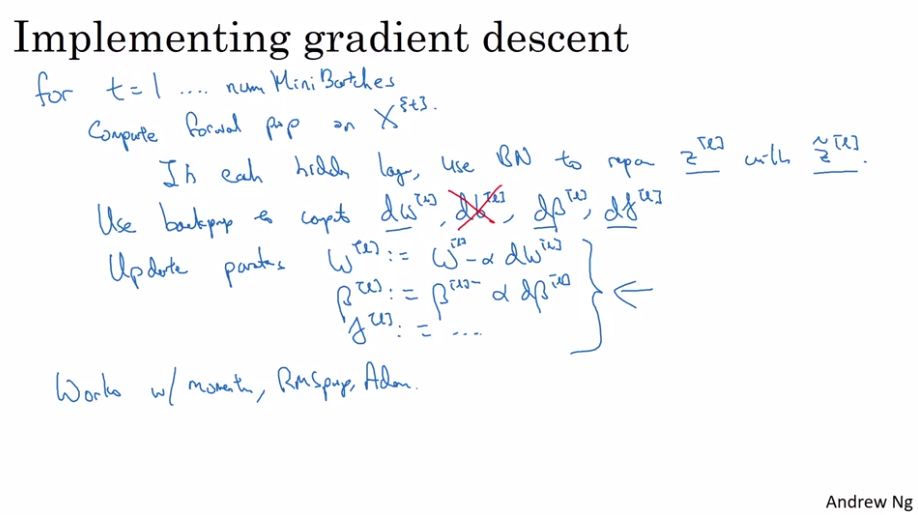 Implementing gradient descent
for t = 1 .... num MiniBatches
Compute forwal prop on X^{t}.
In each hidden lay, use BN to repan z^[l] with z̃^[l].
Use backprop to compt dw^[l], db^[l], dβ^[l], dγ^[l]
Update parates w^[l] := w^[l] - α dw^[l]
β^[l] := β^[l] - α dβ^[l]
γ^[l] := ....
Works w/ momentm, RMSprop, Adam.
Andrew Ng